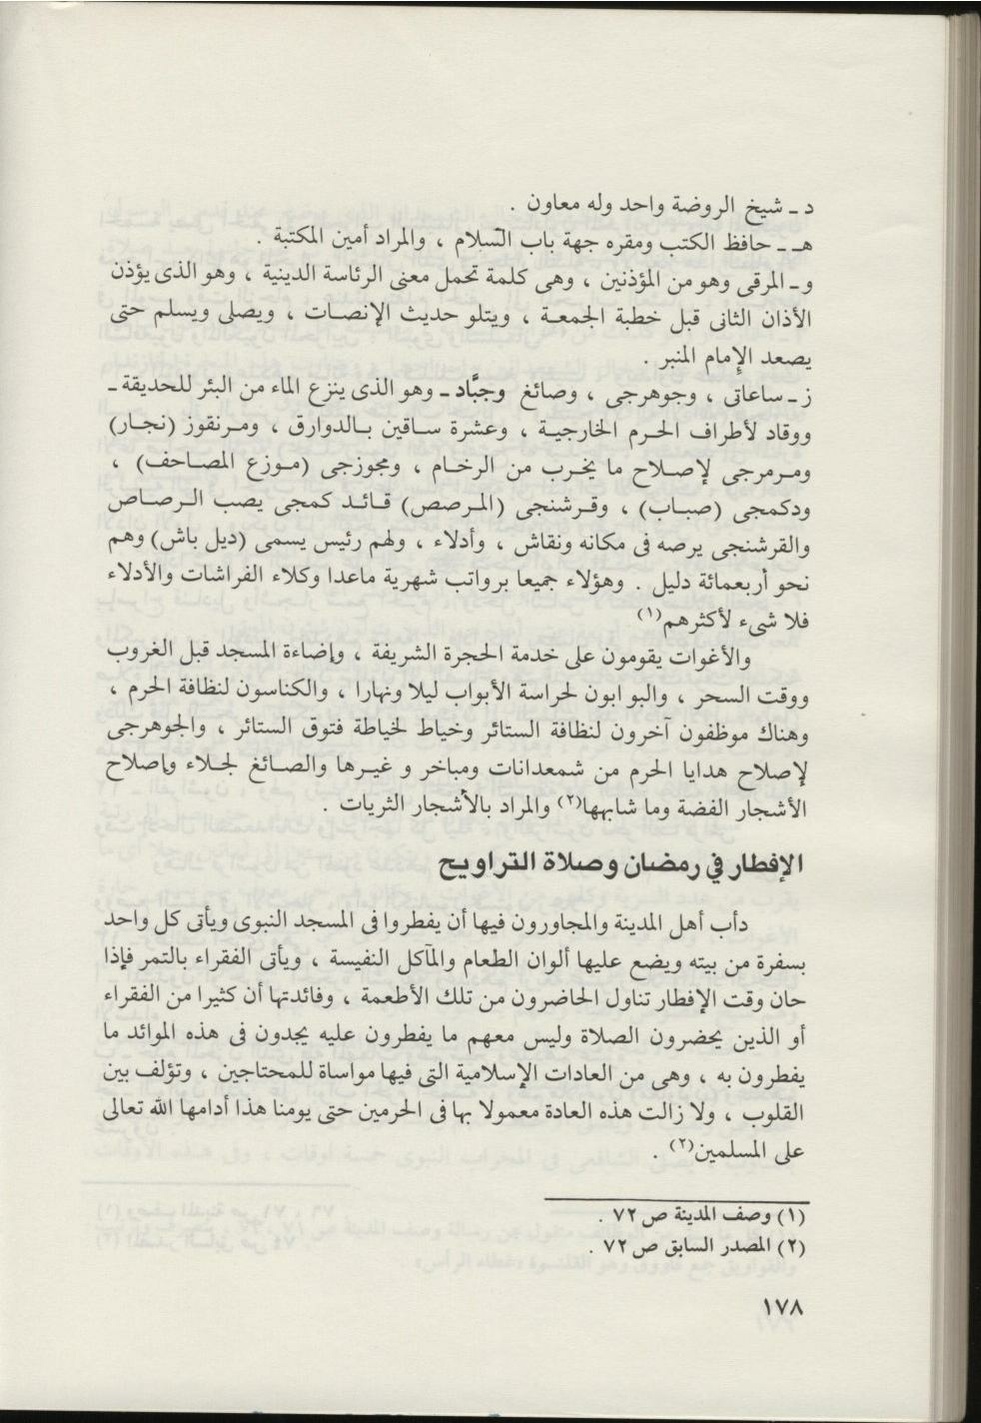 د ـ شيخ الروضة واحد وله معاون .
هـ ـ حافظ الكتب ومقره جهة باب السلام ، والمراد أمين المكتبة .
و ـ المرقى وهو من المؤذنين ، وهى كلمة تحمل معنى الرئاسة الدينية ، وهو الذى يؤذن
الأذان الثانى قبل خطبة الجمعة ، ويتلو حديث الإنصات ، ويصلى ويسلم حتى
يصعد الإمام المنبر .
ز ـ ساعاتى ، وجوهرجى ، وصائغ وجبَّاد ـ وهو الذى ينزع الماء من البئر للحديقة ـ
ووقاد لأطراف الحرم الخارجية ، وعشرة ساقين بالدوارق ، ومرنقوز (نجار)
ومرمرجى لإصلاح ما يخرب من الرخام ، ومجوزجى (موزع المصاحف) ،
ودكمجى (صباب) ، وقرشنجى (المرصص) قائد كمجى يصب الرصاص
والقرشنجى يرصه فى مكانه ونقاش ، وأدلاء ، ولهم رئيس يسمى (ديل باش) وهم
نحو أربعمائة دليل . وهؤلاء جميعا برواتب شهرية ماعدا وكلاء الفراشات والأدلاء
فلا شىء لأكثرهم(١)
والأغوات يقومون على خدمة الحجرة الشريفة ، وإضاءة المسجد قبل الغروب
ووقت السحر ، والبو ابون لحراسة الأبواب ليلا ونهارا ، والكناسون لنظافة الحرم ،
وهناك موظفون آخرون لنظافة الستائر وخياط لخياطة فتوق الستائر ، والجوهرجى
لإصلاح هدايا الحرم من شمعدانات ومباخر و غيرها والصائغ لجلاء وإصلاح
الأشجار الفضة وما شابهها(٢) والمراد بالأشجار الثريات .
الإفطار في رمضان وصلاة التراويح
دأب أهل المدينة والمجاورون فيها أن يفطروا فى المسجد النبوى ويأتى كل واحد
بسفرة من بيته ويضع عليها ألوان الطعام والمآكل النفيسة ، ويأتى الفقراء بالتمر فإذا
حان وقت الإفطار تناول الحاضرون من تلك الأطعمة ، وفائدتها أن كثيرا من الفقراء
أو الذين يحضرون الصلاة وليس معهم ما يفطرون عليه يجدون فى هذه الموائد ما
يفطرون به ، وهى من العادات الإسلامية التى فيها مواساة للمحتاجين ، وتؤلف بين
القلوب ، ولا زالت هذه العادة معمولا بها فى الحرمين حتى يومنا هذا أدامها الله تعالى
على المسلمين(٢) .
(١) وصف المدينة ص ٧٢ .
(٢) المصدر السابق ص ٧٢ .
١٧٨